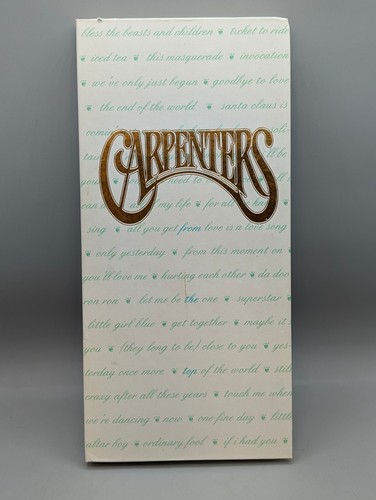 bless the beasts and children ❦ ticket to ride
❦ iced tea ❦ this masquerade ❦ invocation
❦ we've only just begun ❦ goodbye to love
❦ the end of the world ❦ santa claus is
coming soli-
CARPENTERS
tair 'll be
you need to
can my life ❦ for all kn
sing ❦ all you get from love is a love song
❦ only yesterday ❦ from this moment on
you'll love me ❦ hurting each other ❦ da doo
ron ron ❦ let me be the one ❦ superstar ❦
little girl blue ❦ get together ❦ maybe it's
you ❦ (they long to be) close to you ❦ yes-
terday once more ❦ top of the world ❦ still
crazy after all these years ❦ touch me when
we're dancing ❦ now ❦ one fine day ❦ little
altar boy ❦ ordinary fool ❦ if i had you ❦